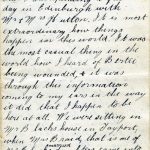 day in Edinburgh with
Mrs & Mr Hutton. It is most
extraordinary how things
happen in this world. It was
the most casual thing in the
world how I heard of Bertie
being wounded, & it was
through this information
coming to my ears in the way
it did that I happen to be
here at all. We were sitting in
Mrs B. Lack's house in Tayport,
when Mrs Brand, that is one of